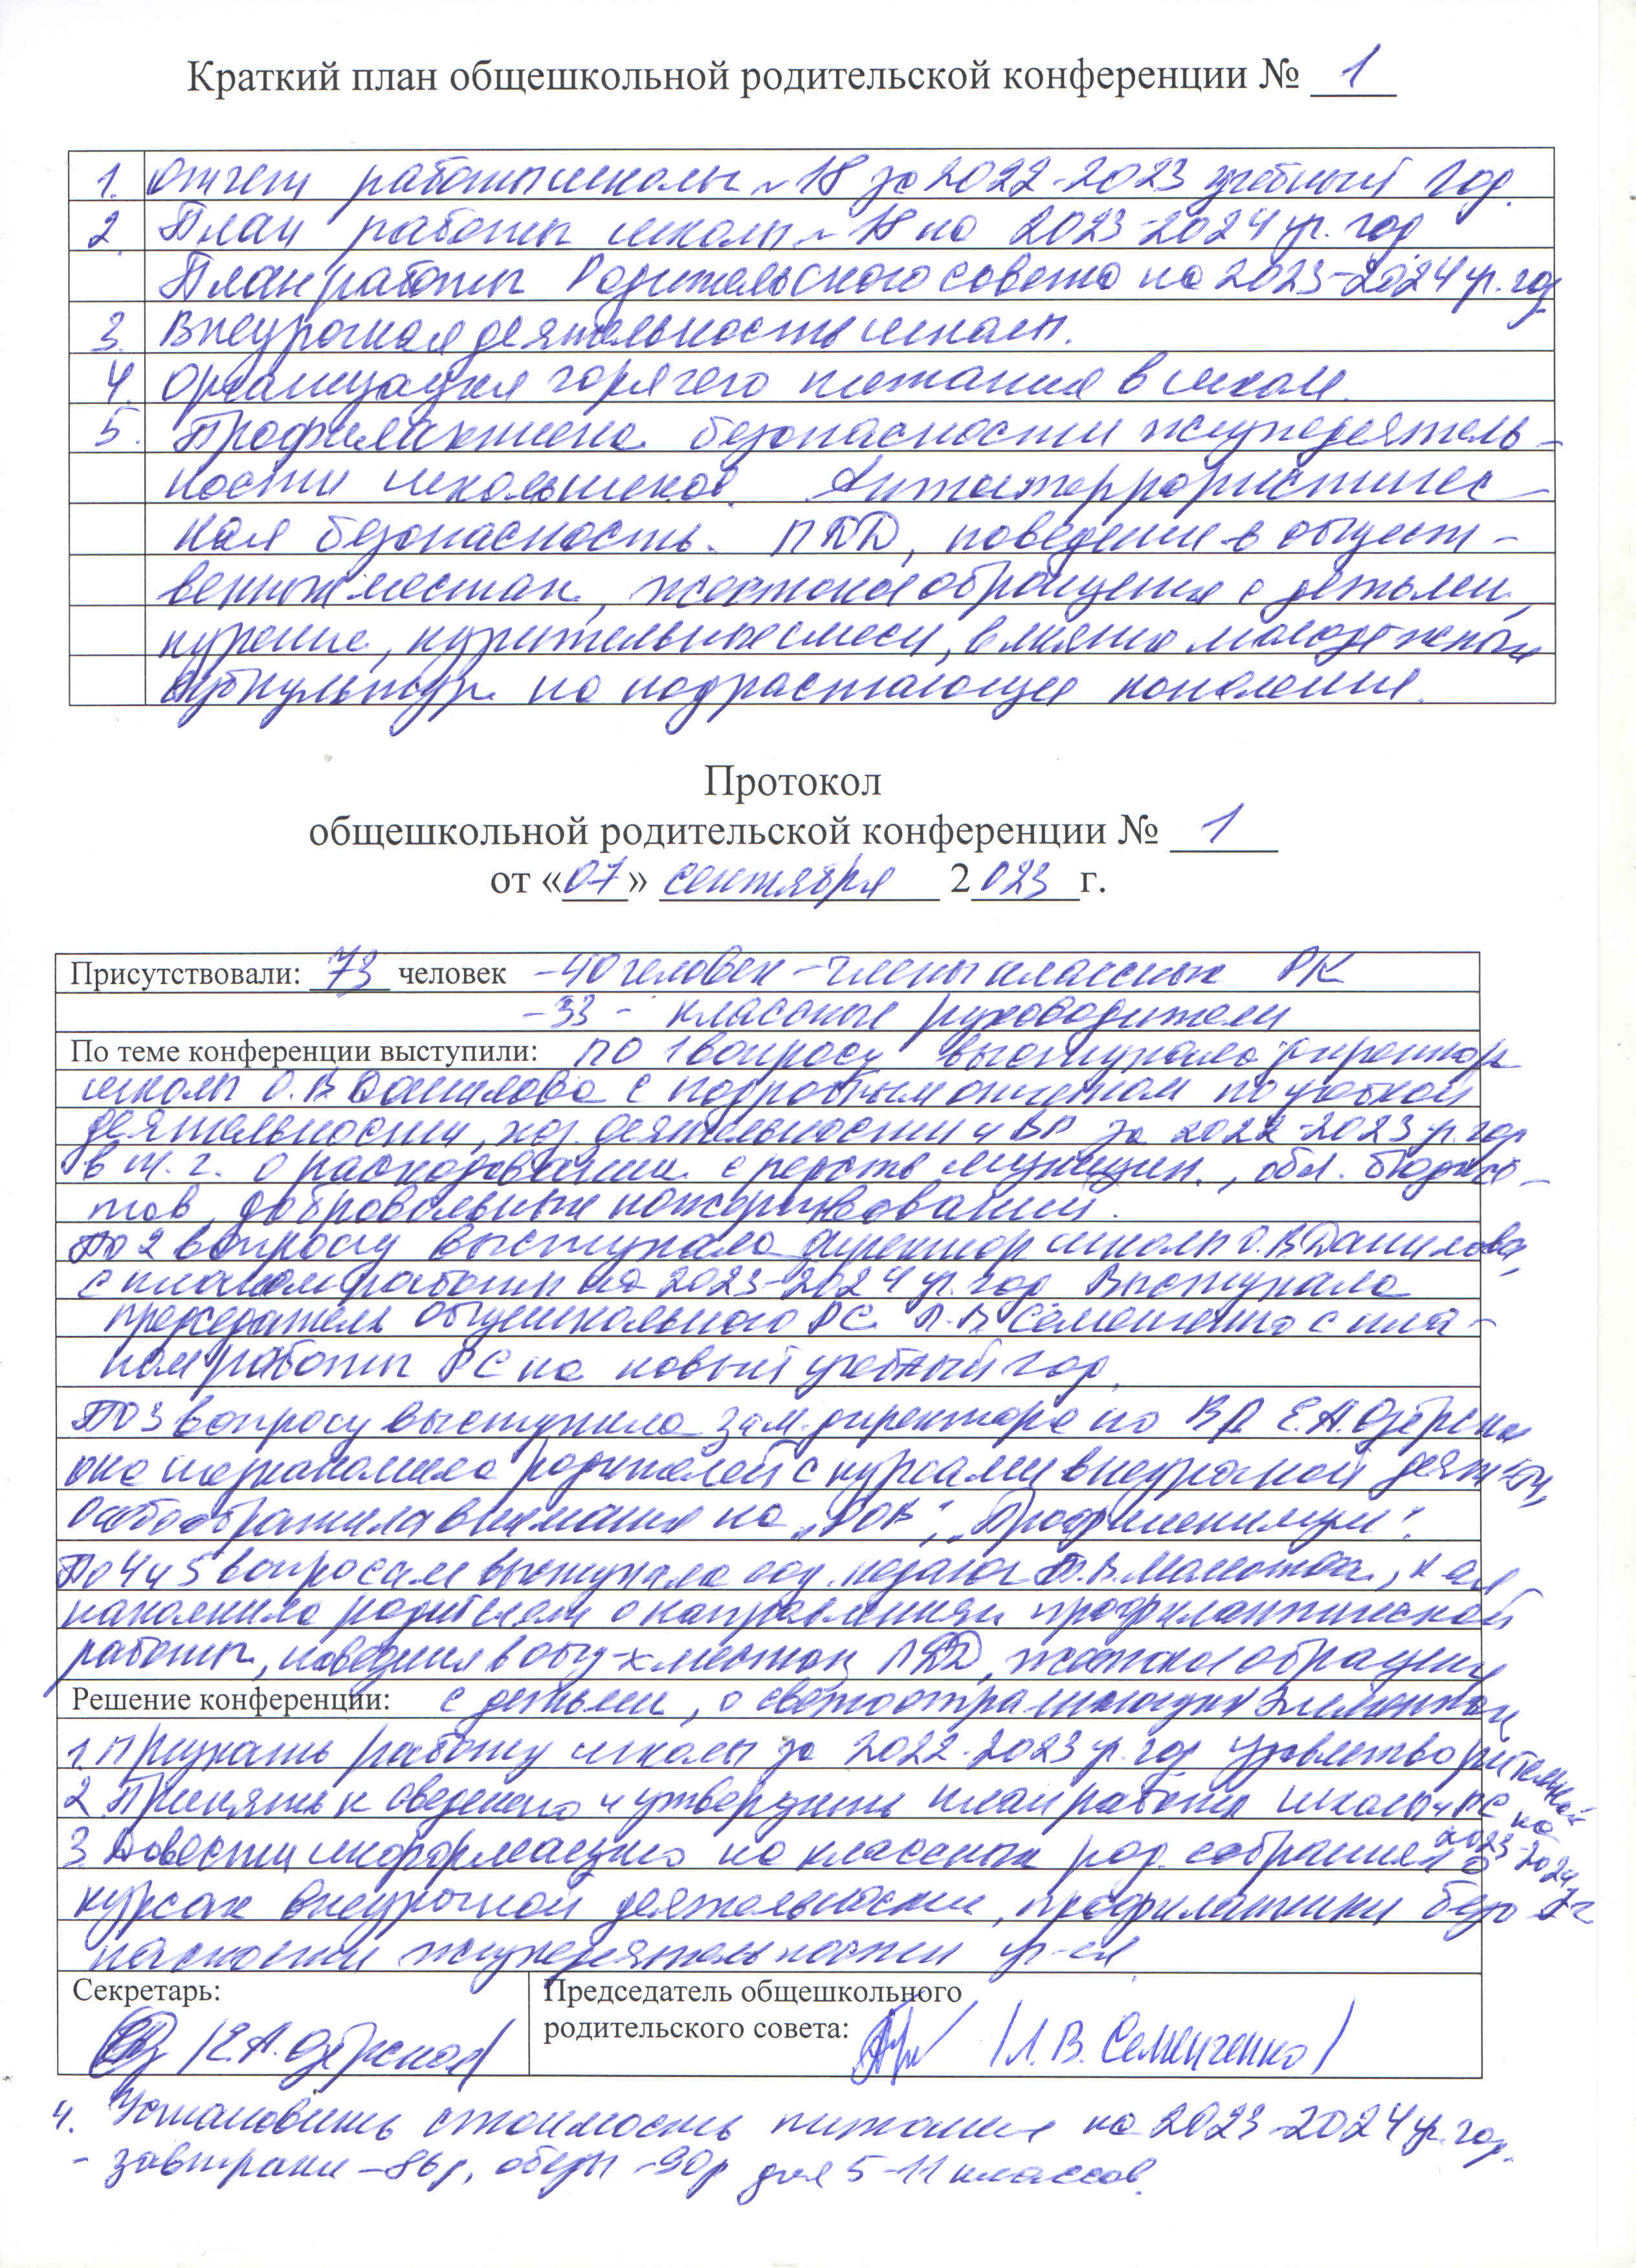 Краткий план общешкольной родительской конференции № 1
1. Отчет работы школы № 18 за 2022-2023 учебный год.
2. План работы школы № 18 на 2023-2024 уч. год
План работы Родительского совета на 2023-2024 уч. год
3. Внеурочная деятельность школы.
4. Организация горячего питания в школе.
5. Профилактика безопасности жизнедеятель-
ности школьников. Антитеррористичес-
кая безопасность. ПДД, поведение в общест-
венных местах, жестокое обращения с детьми,
курение, курительные смеси, влияние молодежных
субкультур на подрастающее поколение.
Протокол
общешкольной родительской конференции № 1
от «07» сентября 2023г.
Присутствовали: 73 человек -40 человек - члены классных РК
-33 - классные руководители
По теме конференции выступили: по 1 вопросу выступала директор
школы О.В Данилова с подробным отчетом по учебной
деятельности, хоз. деятельности и ВР за 2022-2023 уч. год
в т. ч. о расходовании средств муницип., обл. бюдже-
тов, добровольных пожертвований.
По 2 вопросу выступала директор школы О.В Данилова,
с планом работы на 2023-2024 уч. год Выступала
председатель общешкольного РС Л.В. Семенченко с пла-
ном работы РС на новый учебный год.
По 3 вопросу выступила зам. директора по ВР Е.А. Озёрская
она познакомила родителей с курсами внеурочной деят-ти,
особо обратила внимания на „РОВ", „Профминимум".
По 4 и 5 вопросам выступала соц. педагог В. , к ая
напомнила родителям о направлениях профилактической
работы, поведения в общ-х местах, ПДД, жестокое обращение
Решение конференции: с детьми, о светоотражающих элементах
1. Признать работу школы за 2022-2023 уч. год удовлетворительной
2 Принять к сведению и утвердить план работы школы и РС на
2023-2024 уч г
3. Довести информацию на классных род. собраниях о
курсах внеурочной деятельности, профилактики безо
пасности жизнедеятельности уч-ся
Секретарь: Председатель общешкольного
родительского совета:
/Е.А. Озёрская/ /Л.В. Семенченко/
4. Установить стоимость питания на 2023-2024 уч. год.
- завтраки -86р, обеды -90р для 5-11 классов.